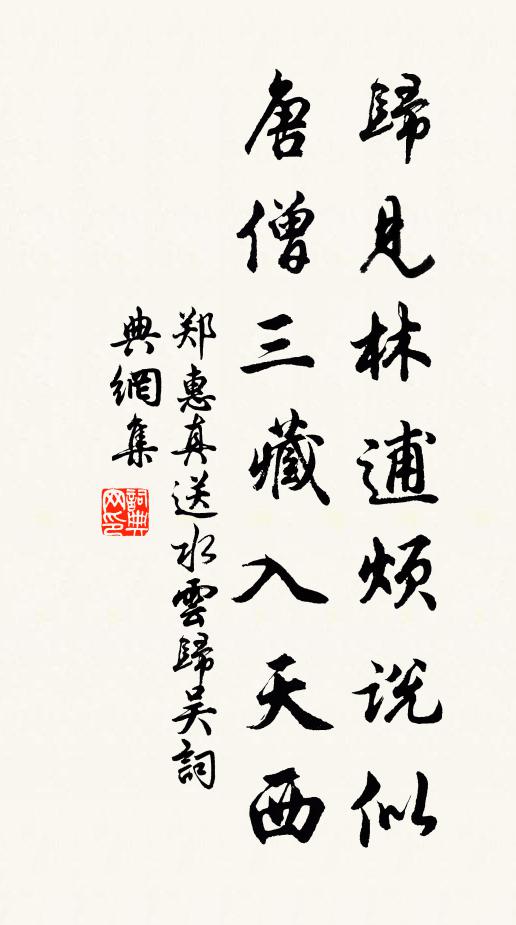 歸見林逋煩說似
唐僧三藏入天西
郑惠真送水雲歸吴詞
典網集
詞典网印